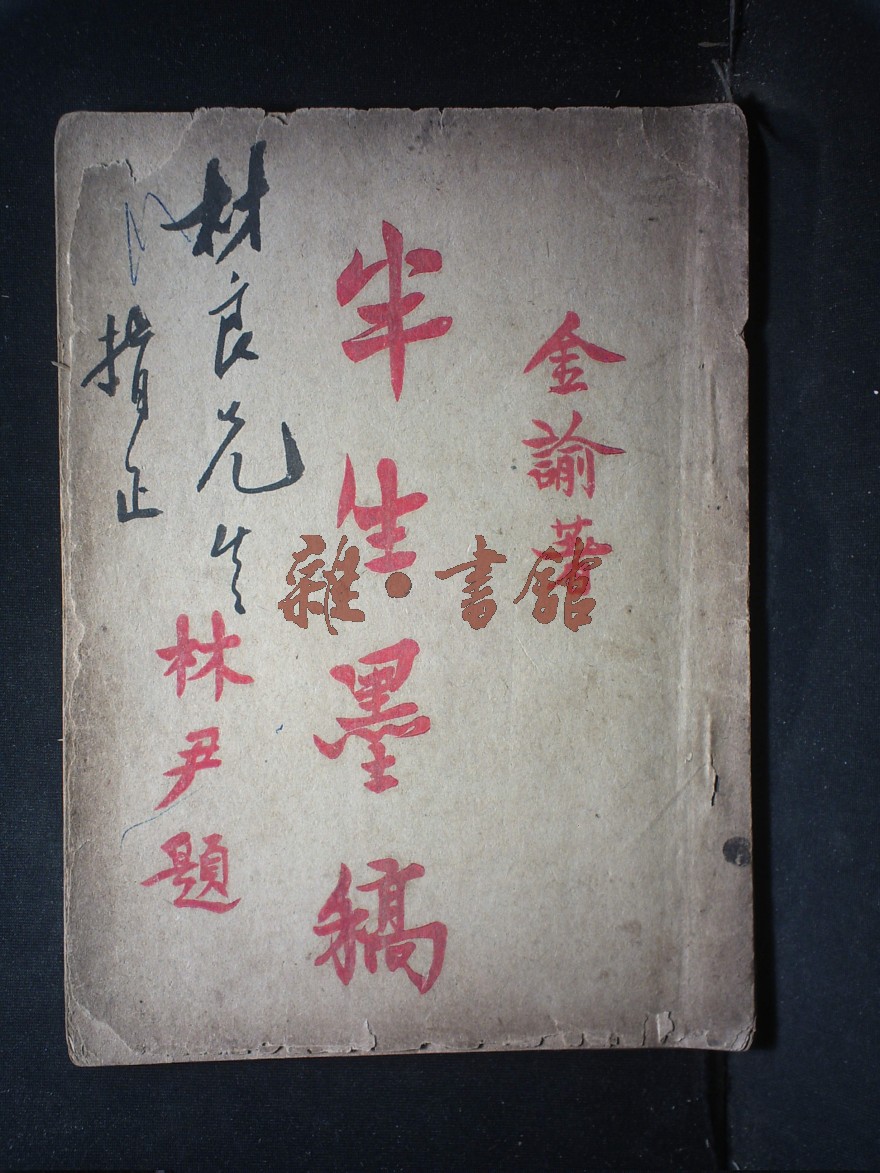 金諭著
半生墨稿
林尹題
材良先生
指正
雜·書館